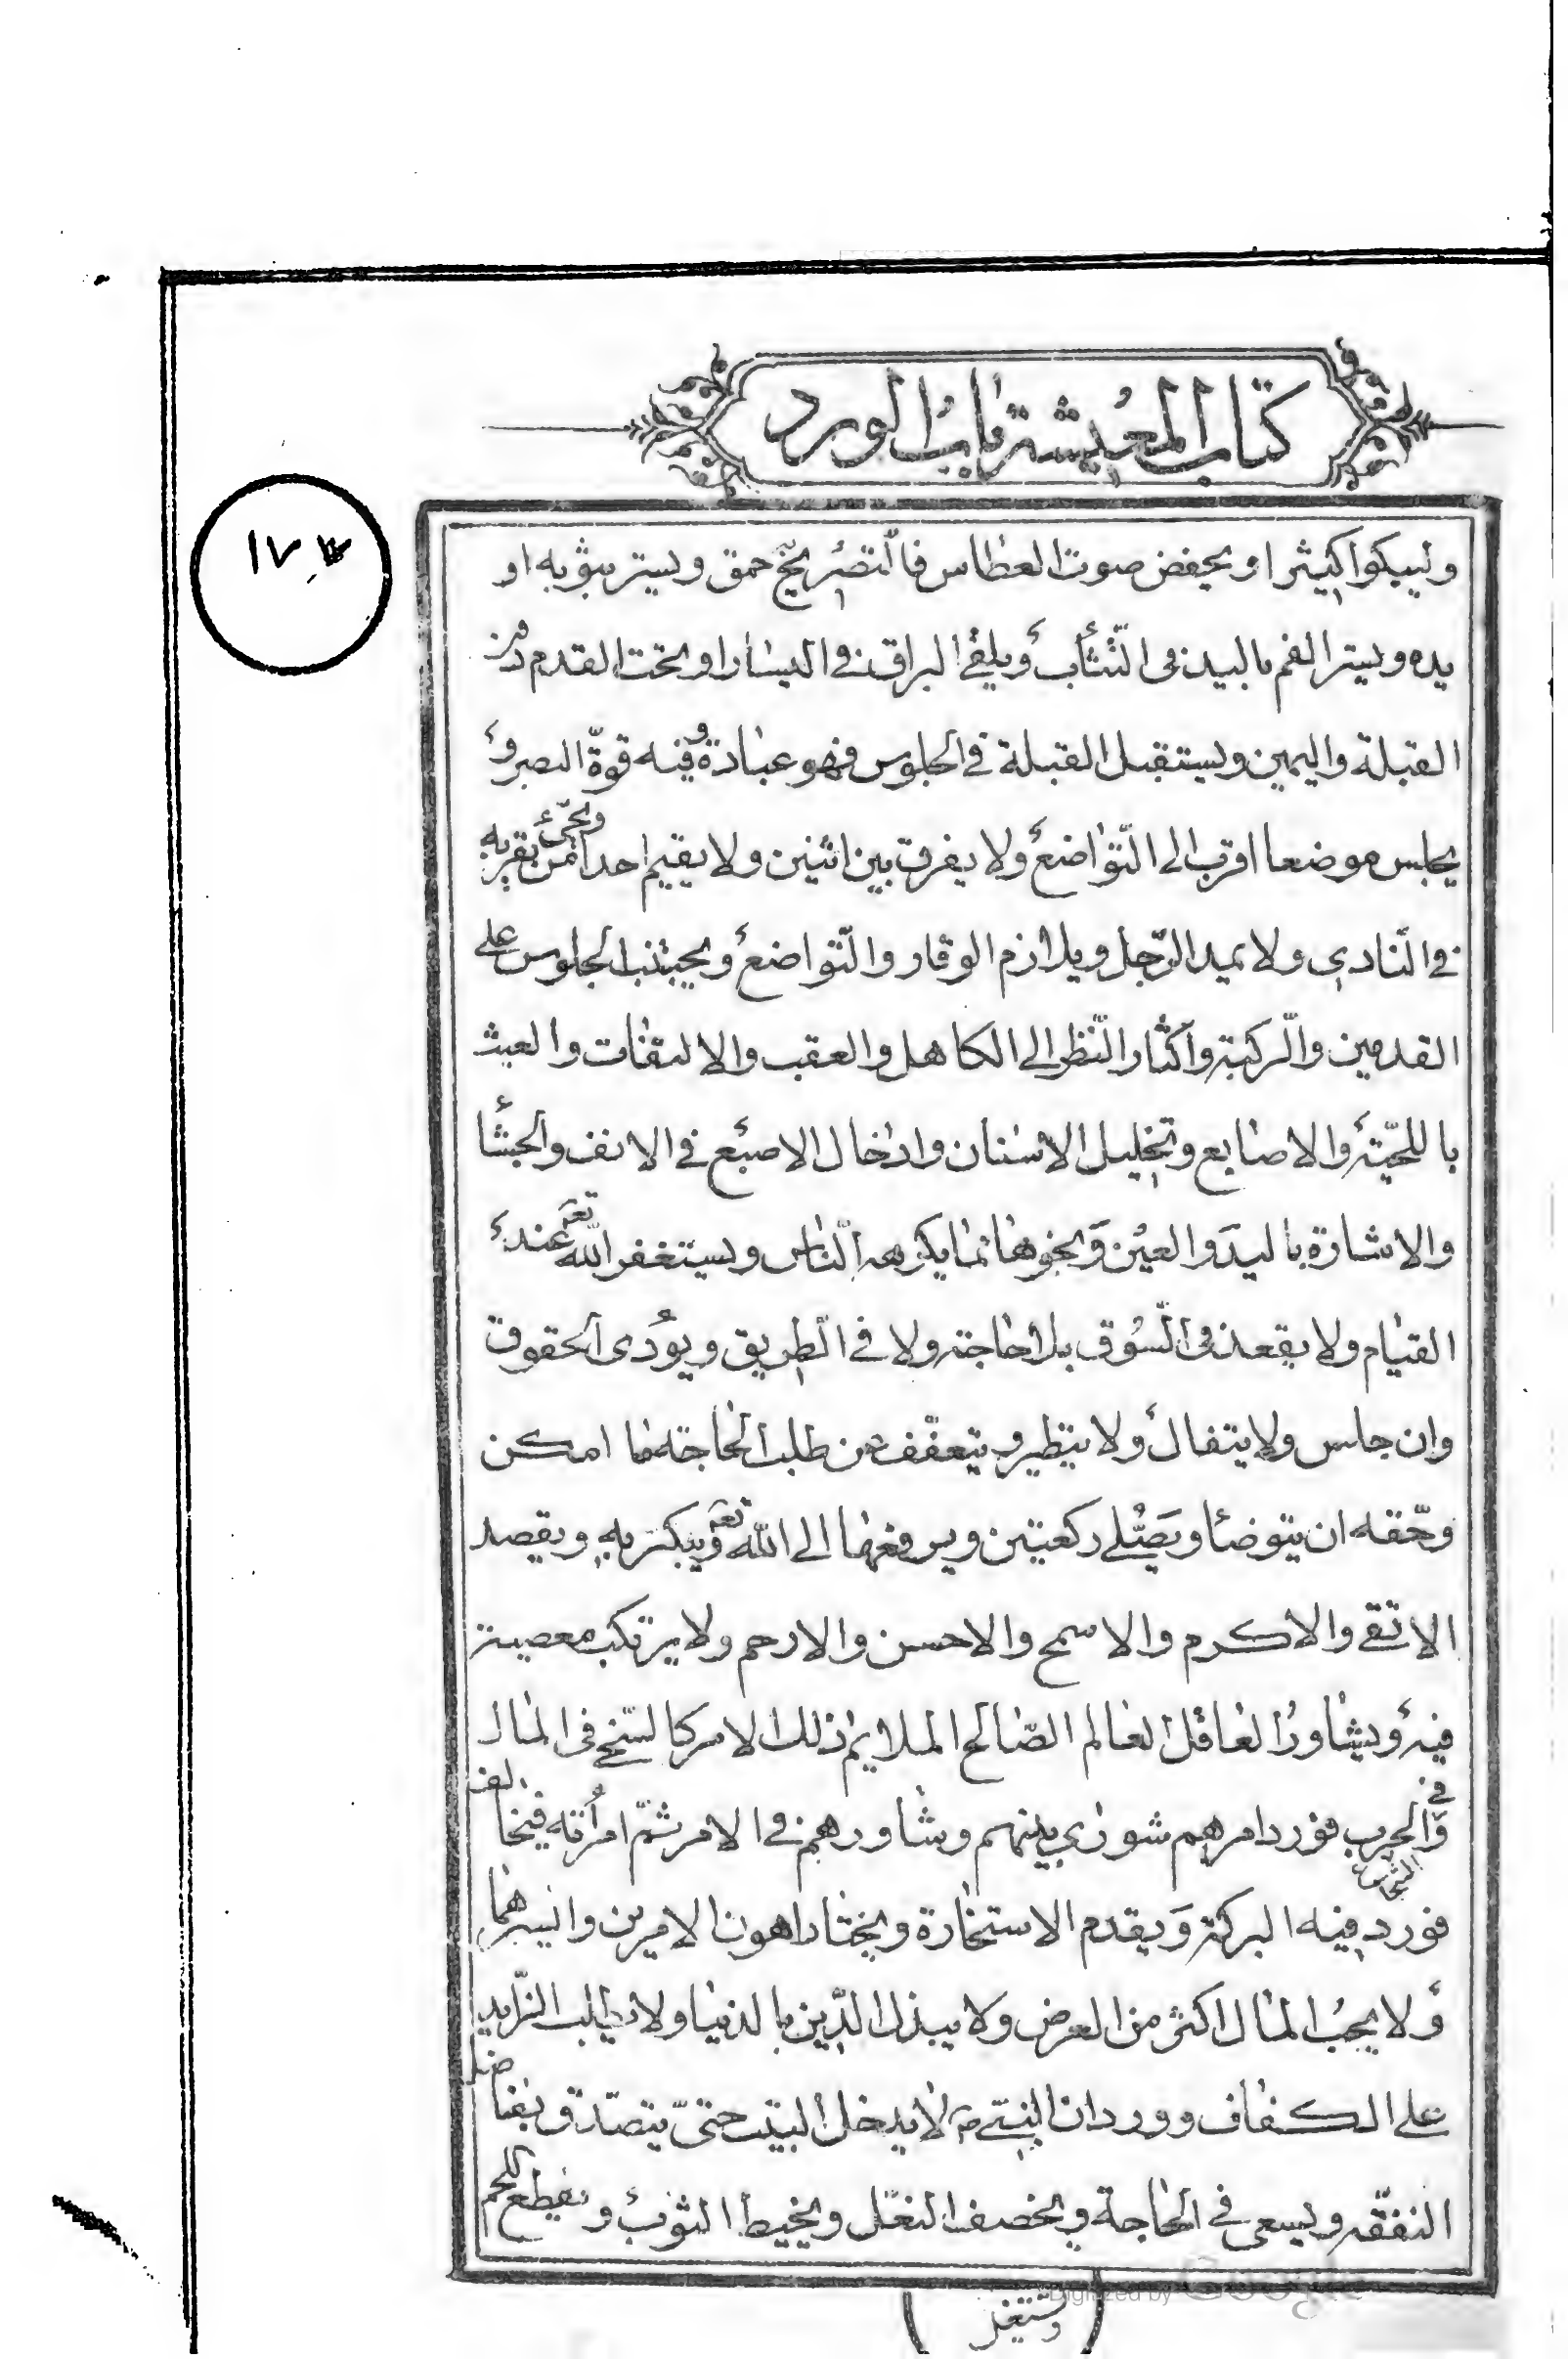 كتاب المعيشة باب الورد
١٧٣
وليبكوا كثيرا ويخفض صوت العطاس فالتصريخ حمق ويستر بثوبه او
يده ويستر الفم باليد في التثأب ويلقي البزاق في اليسار او تحت القدم دون
القبلة واليمين ويستقبل القبلة في الجلوس فهو عبادة وفيه قوة البصر و
يجلس موضعا اقرب الى التواضع ولا يفرق بين اثنين ولا يقيم احدا من بقربه
في النادي ولا يمد الرجل ويلازم الوقار والتواضع ويجتنب الجلوس على
القدمين والركبة واكثار النظر الى الكاهل والعقب والالتفات والعبث
باللحية والاصابع وتخليل الاسنان وادخال الاصبع في الانف والجشأ
والاشارة باليد والعين ونحوها مما يكرهه الناس ويستغفر الله تعه عند
القيام ولا يقعد في السوق بلا حاجة ولا في الطريق ويؤدى الحقوق
وان جلس ولا يتفال ولا يتطير ويتعفف عن طلب الحاجة ما امكن
وحقه ان يتوضا ويصلي ركعتين ويرفعها الى الله تعه ويبكر به ويقصد
الاتقى والاكرم والاسمح والاحسن والارحم ولا يرتكب معصية
فيه ويشاور العاقل العالم الصالح الملايم ذلك الامر كالسخي في المال
و الشجاع في الحرب فورد امرهم شورى بينهم وشاورهم في الامر ثم امرأته فيخالف
فورد فيه البركة ويقدم الاستخارة ويختار اهون الامرين وايسرهما
ولا يحب المال اكثر من العرض ولا يبذل الدين بالدنيا ولا يطلب الزايد
على الكفاف وورد ان النبي ص لا يدخل البيت حتى يتصدق بفاضل
النفقه ويسعى في الحاجة ويخصف النعل ويخيط الثوب ويقطع اللحم
Digitized by Google